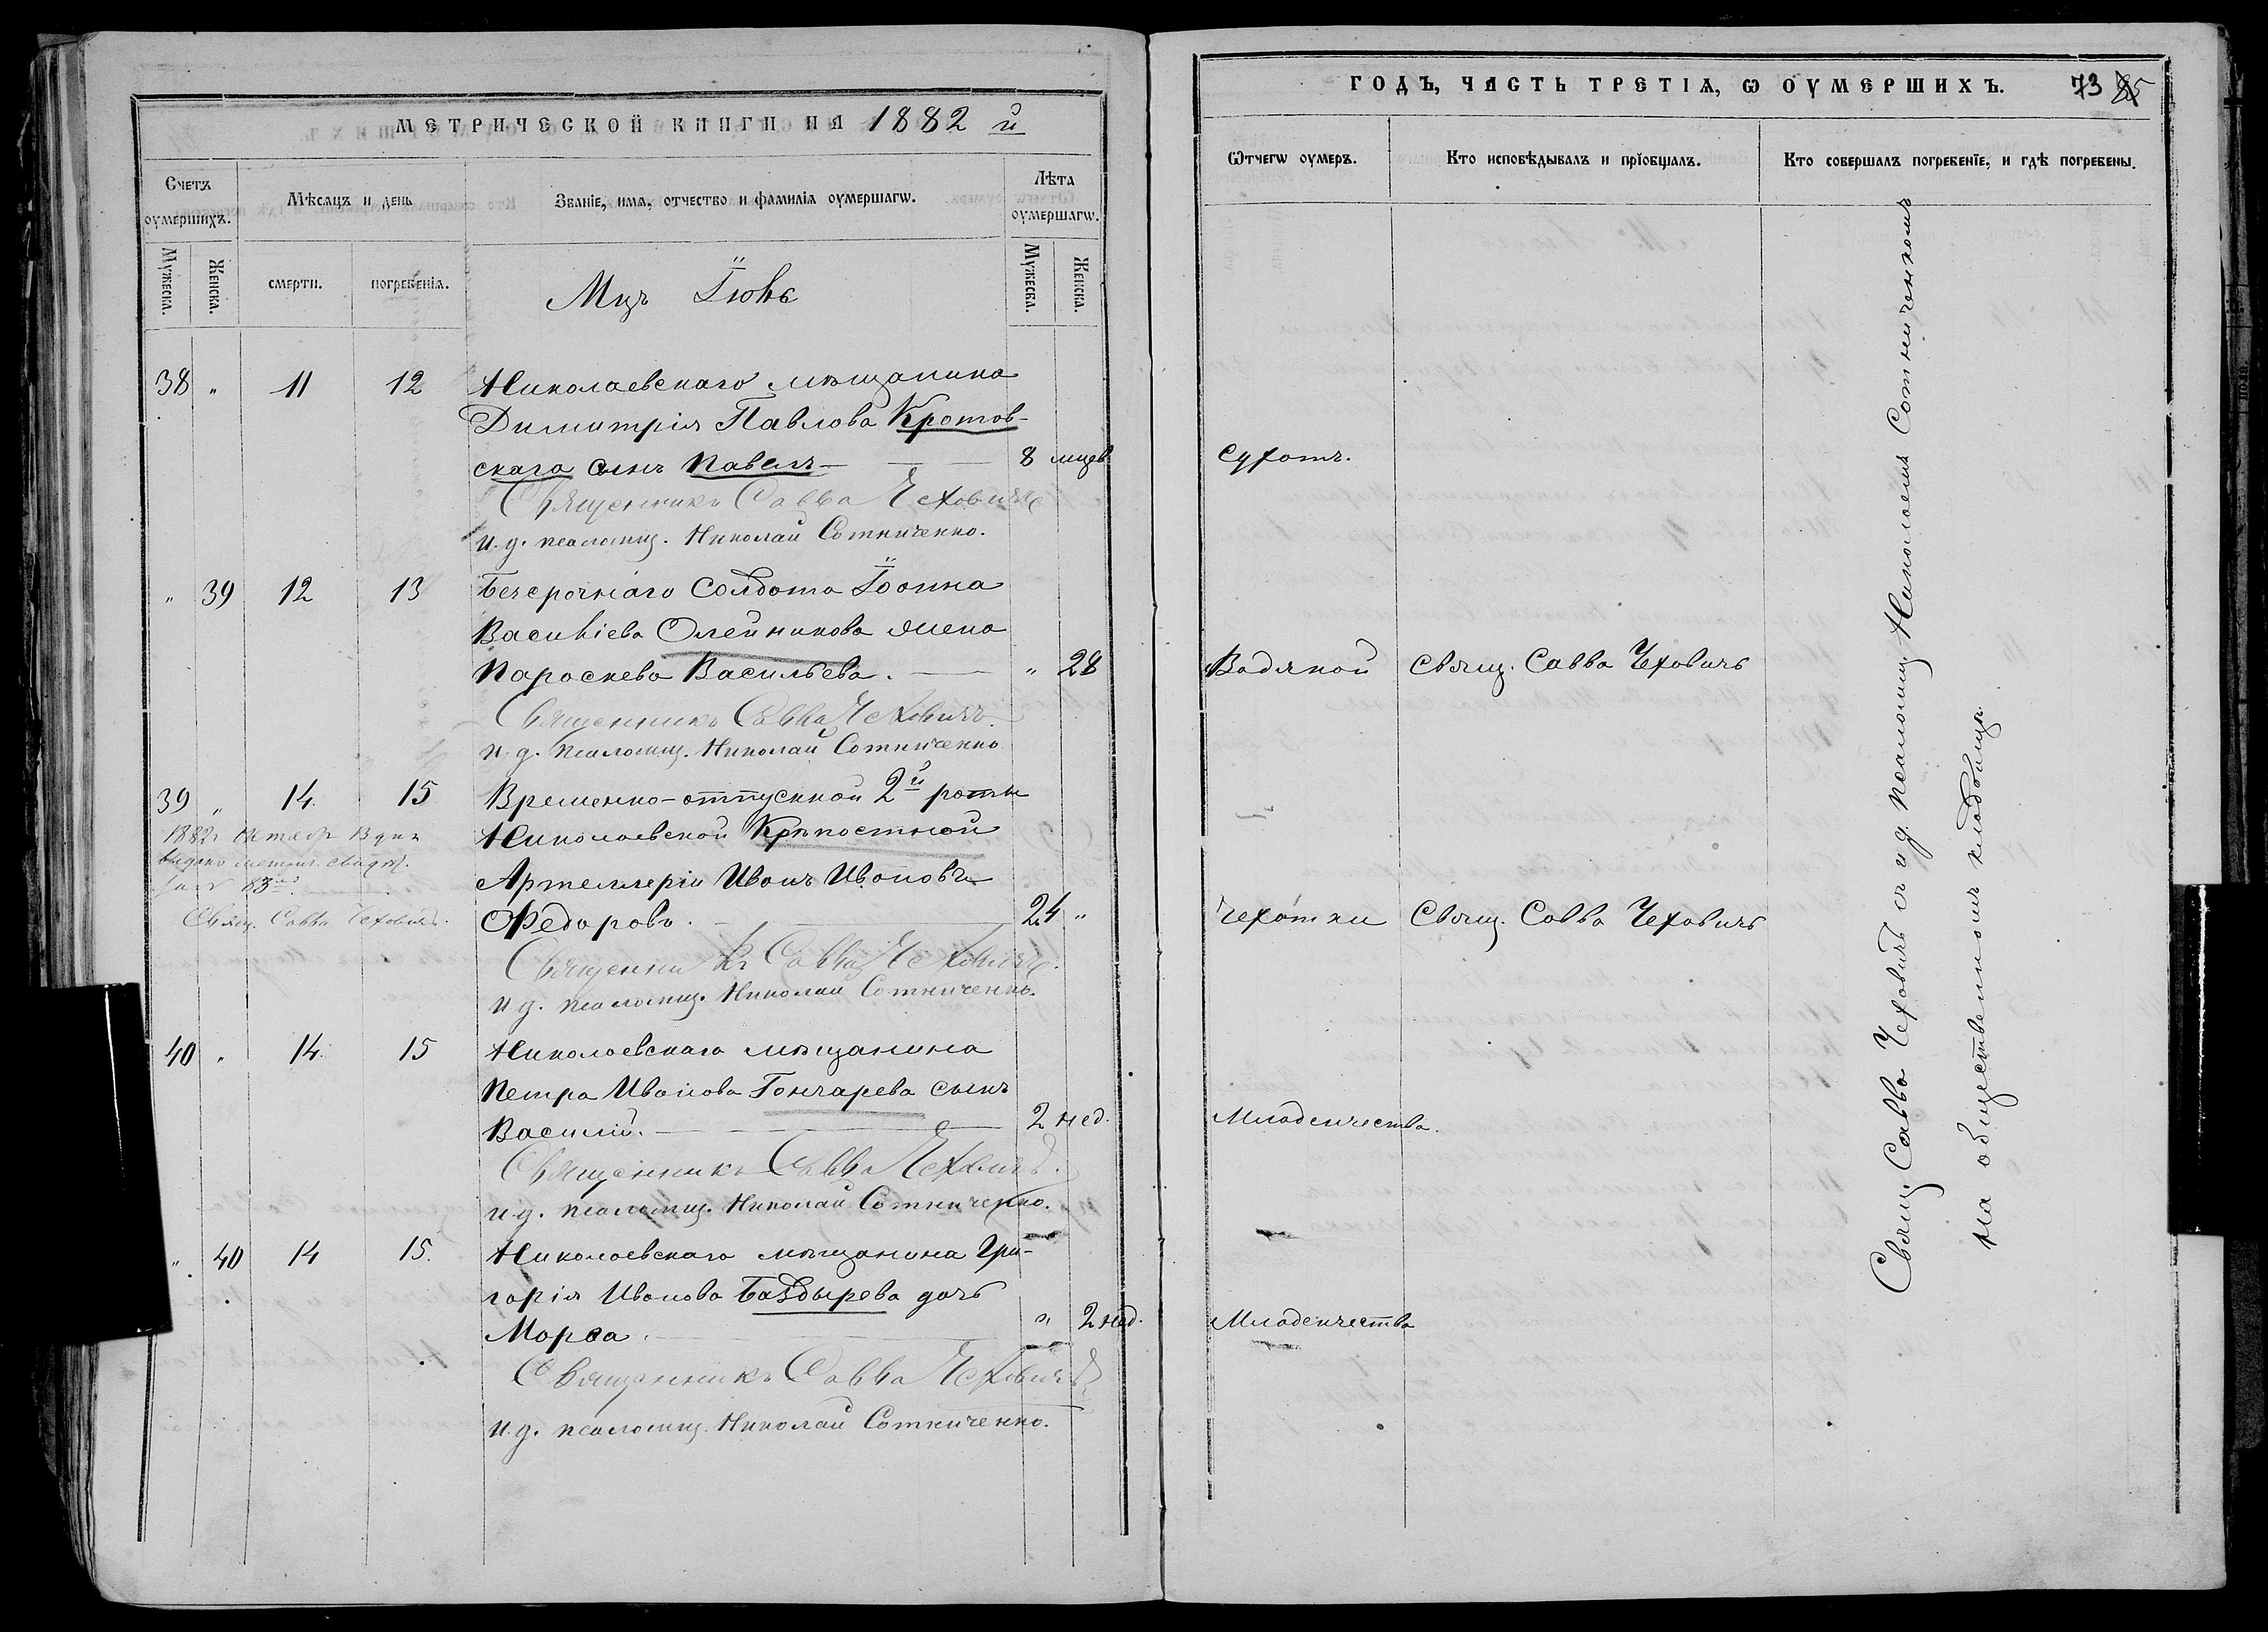 МЕТРИЧЕСКОЙ КНИГИ НА 1882 й
Счетъ оумершихъ.
Мѣсяцъ и день
Званіе, имя, отчество и фамилія оумершагѡ.
Лѣта оумершагѡ.
Мужеска.
Женска.
смерти.
погребенія.
Мужеска.
Женска.
Мцъ Іюнь
38 " 11 12 Николаевскаго мѣщанина
Димитрія Павлова Кротов-
скаго сынъ Павелъ 8 мцев
Священникъ Савва Чеховичъ
и. д. псаломщ. Николай Сотниченко.
" 39 12 13 Безсрочнаго Солдата Іоанна
Василіева Олейникова жена
Параскева Васильева. " 28
Священникъ Савва Чеховичъ
и. д. псаломщ. Николай Сотниченко
39 " 14 15 Временно-отпускной 2й роты
Николаевской Крѣпостной
Артеллеріи Иванъ Ивановъ
Федоровъ. 24 "
1882 Октябр 13 дня
видано метрич. свидѣт.
за № 83
Свящ. Савва Чеховичъ.
Священникъ Савва Чеховичъ.
и д. псаломщ. Николай Сотниченко.
40 " 14 15 Николаевскаго мѣщанина
Петра Иванова Гончарева сынъ
Василій. 2 нед.
Священникъ Савва Чеховичъ.
и. д. псаломщ. Николай Сотниченко.
" 40 14 15. Николаевскаго мѣщанина Гри-
горія Иванова Баздырева дочь
Марѳа. " 2 нед.
Священникъ Савва Чеховичъ
и. д. псаломщ. Николай Сотниченко.
ГОДЪ, ЧАСТЬ ТРЕТІЯ, Ѡ ОУМЕРШИХЪ. 73 85
Ѿтчегѡ оумеръ.
Кто исповѣдывалъ и пріобщалъ.
Кто совершалъ погребеніе, и гдѣ погребены.
Сухотъ.
Водяной Свящ. Савва Чеховичъ
Чехотки Свящ. Савва Чеховичъ
Младенчества.
Младенчества
Свящ. Савва Чеховичъ съ и д псаломщ. Николаемъ Сотниченкомъ
на общественномъ кладбищѣ.